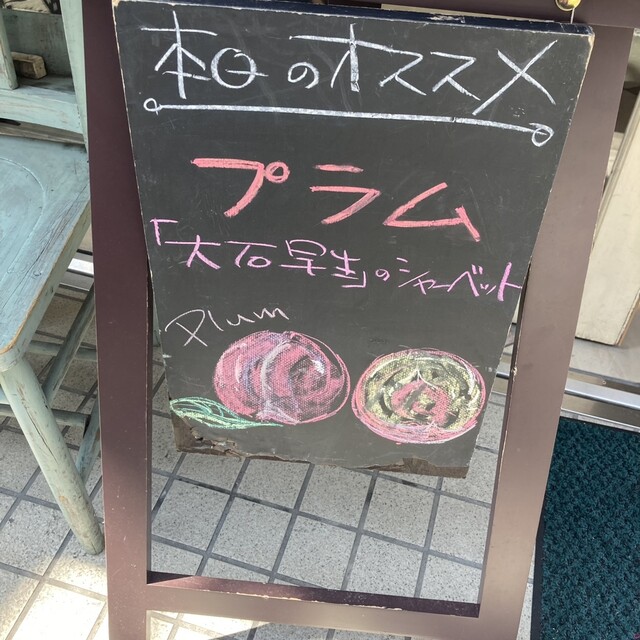 本日のオススメ
プラム
「大石早生」のシャーベット
Plum